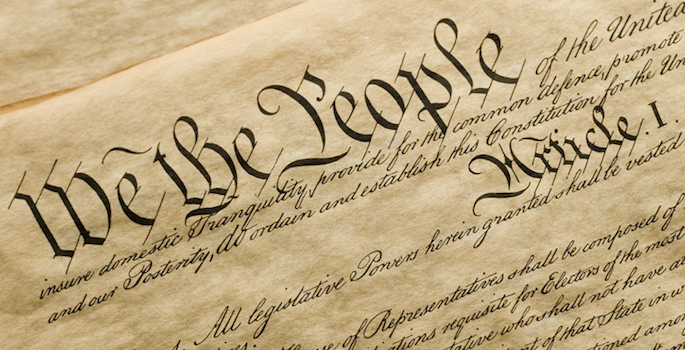 We the People of the United
insure domestic Tranquility, provide for the common defence, promote
and our Posterity, do ordain and establish this Constitution for the Un
Article. I.
All legislative Powers herein granted shall be vested
se of Representatives shall be composed of
ations requisite for Electors of the most
tative who shall not have a
nt of that State in w
tioned amon